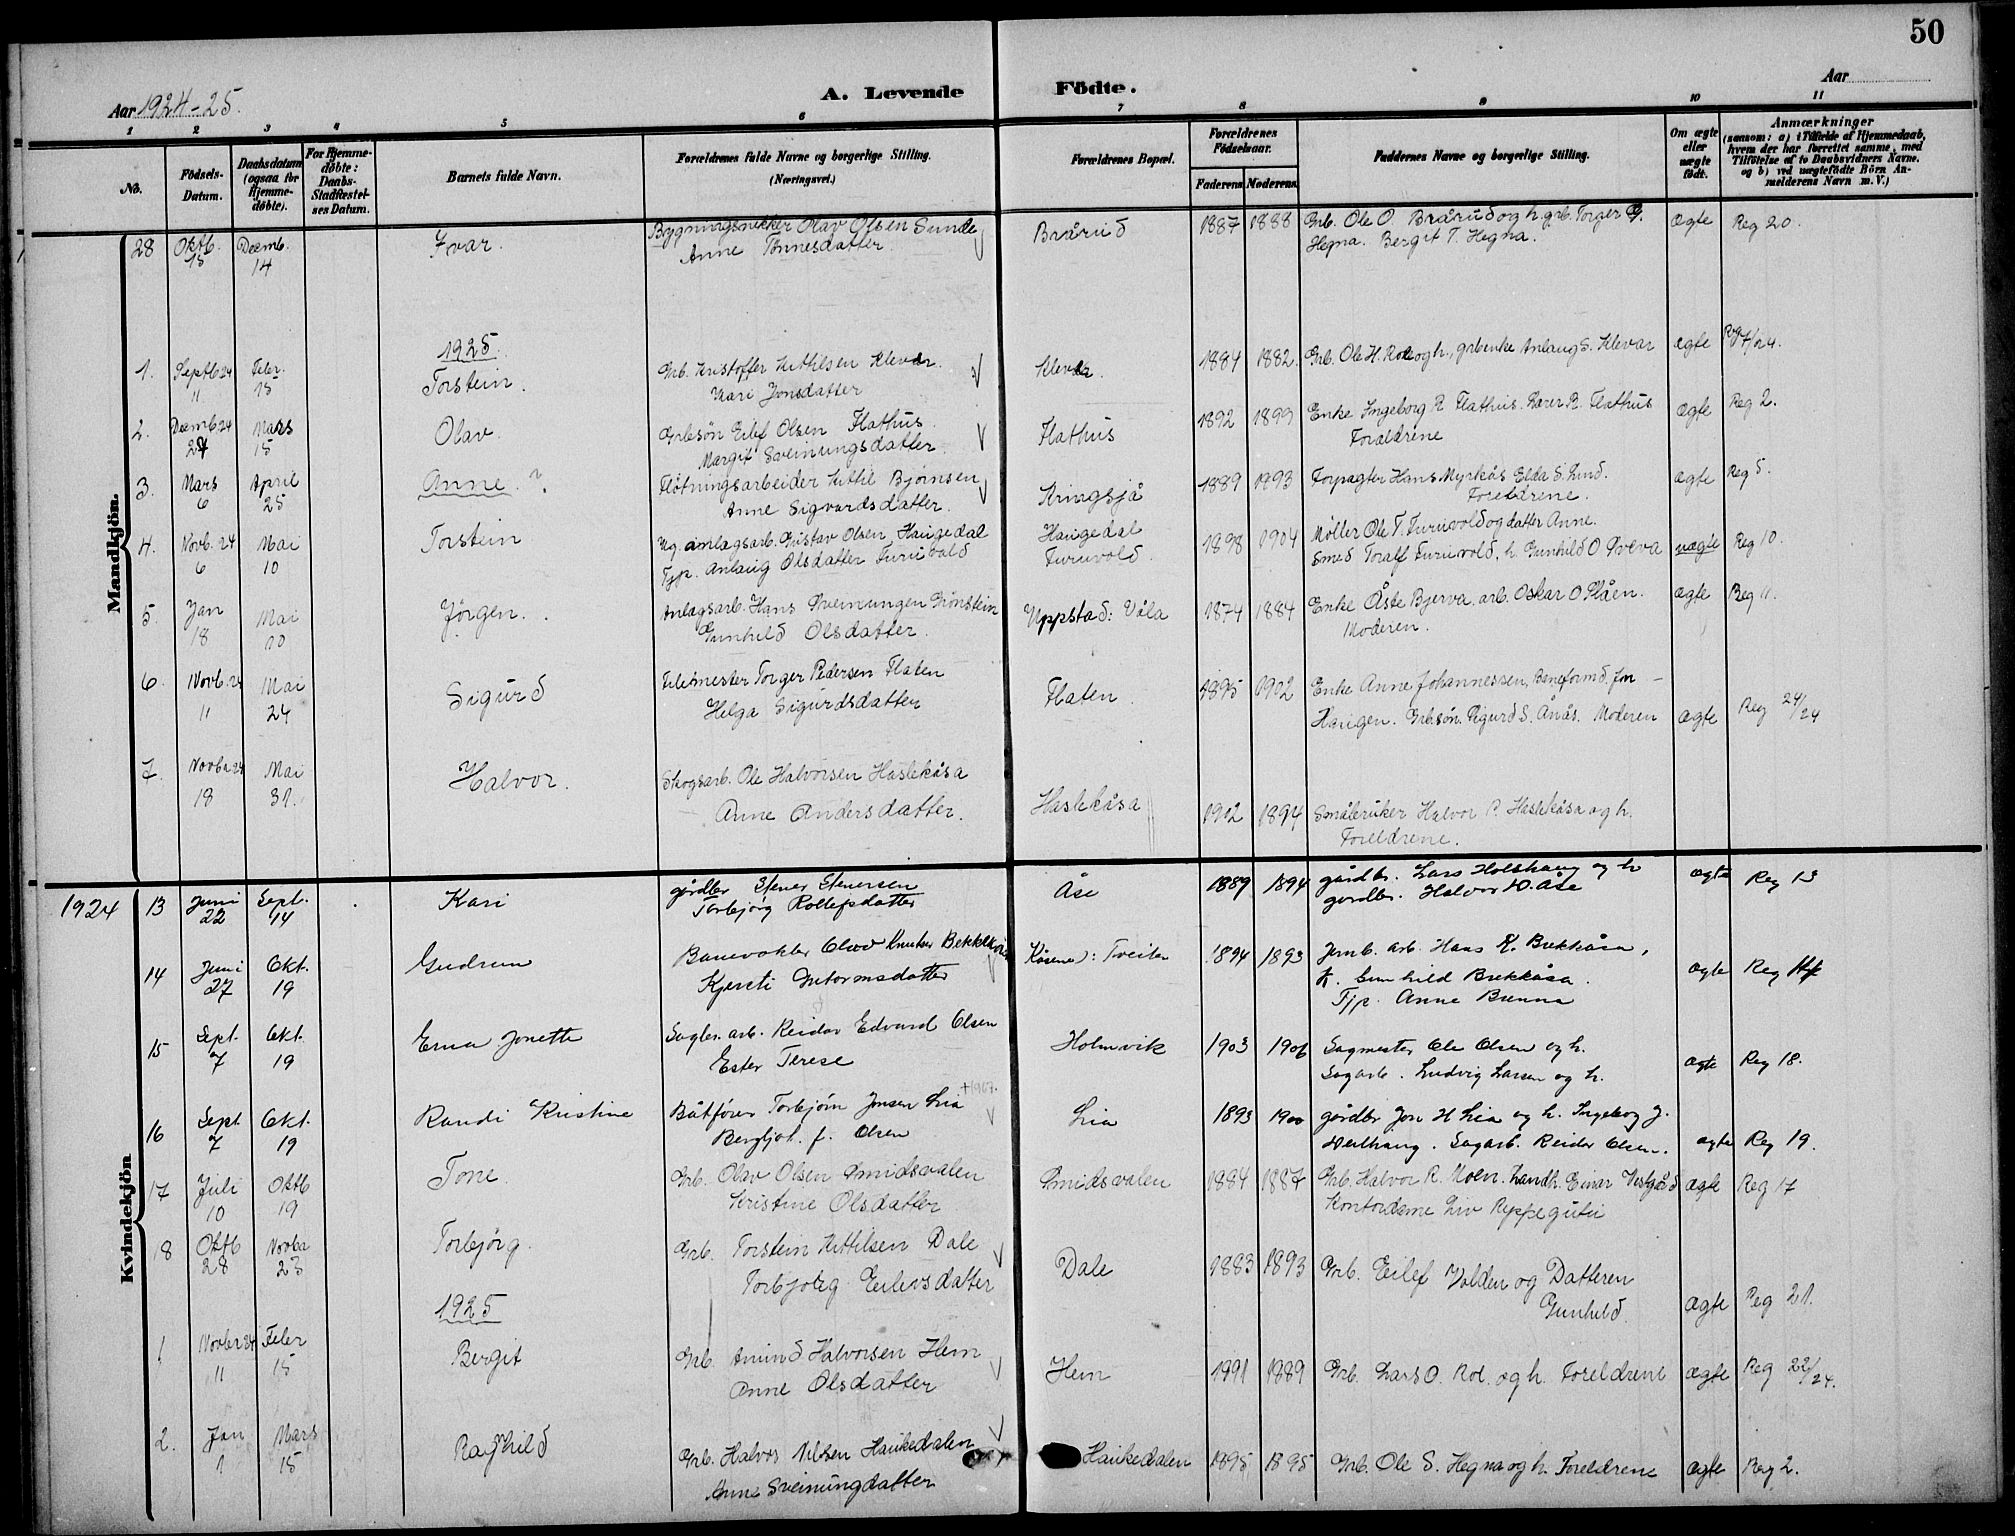 50
Aar 1924-25.
A. Levende Födte.
Aar
1 2 3 4 5 6 7 8 9 10 11
No.
Födsels-Datum.
Daabsdatum (ogsaa for Hjemme-döbte).
For Hjemme-döbte: Daabs-Stadfæstel-ses Datum.
Barnets fulde Navn.
Forældrenes fulde Navne og borgerlige Stilling.
(Næringsvei.)
Forældrenes Bopæl.
Forældrenes Födselsaar.
Faderens Moderens
Faddernes Navne og borgerlige Stilling.
Om ægte eller uægte födt.
Anmærkninger
(saasom: a) i Tilfælde af Hjemmedaab, hvem der har forrettet samme, med Tilföielse af to Daabsvidners Navne. og b) ved uægtefödte Börn An-melderens Navn m. V.)
Mandkjön.
28 Oktb. 15 Decemb. 14 Ivar. Bygningssnekker Olav Olsen Sunde Brårud 1887 1888 Grb. Ole O. Brårud og h. grb. Torger Hegna. Bergit T. Hegna. ægte Reg 20.
Anne Tonnesdatter
1925
1. Septb 24 11 Febr. 15 Torstein. Grb. Kristoffer Kittilsen Klevar. 1884 1882. Grb. Ole H. Roe og h., grbenke Anlaug S. Klevar ægte
Kari Jonsdatter
2. Decemb 24 Mars 15 Olav. Grbsøn Eilef Olsen Flathus. Flathus 1892 1899 Enke Ingeborg R. Flathus. Lærer R. Flathus ægte Reg 2.
Margit Sveinungsdatter. Foreldrene
3. Mars 6 April 25 Anne. ? Fløtningsarbeider Kittil Bjørnsen Kringsjå 1889 1993 Forpagter Hans Myrkås Elda S. Lund. ægte Reg 5.
Anne Sigvardsdatter. Foreldrene.
4. Novb. 24 6 Mai 10 Torstein Ug. anlagsarb. Gustav Olsen Haugedal Haugedal 1898 1904 Møller Ole T. Furuvold og datter Anne. uægte Reg 10.
Tjp. Anlaug Olsdatter Furuvold Furuvold Smed Toralf Furuvold, h. Gunhild O
5. Jan 18 Mai 10 Jørgen. Anlagsarb. Hans Sveinungen Grønstein Uppstad: Våla 1874 1884 Enke Åste Bjerva, arb. Oskar O. Flåen. ægte Reg 11.
Gunhild Olsdatter. Moderen.
6. Novb. 24 11 Mai 24 Sigurd Telemester Torger Pedersen Flaten Flaten 1895 1902 Enke Anne Johannessen, Baneformd. Jon
Helga Sigurdsdatter Haugen. Grbsøn. Sigurd S. Anås. Moderen ægte Reg 24/24
7. Novbr 24 18 Mai 31. Halvor. Skogsarb. Ole Halvorsen Haslekåsa Haslekåsa 1902 1894 Småbruker Halvor P. Haslekåsa og h.
Anne Andersdatter. Foreldrene.
Kvindekjön
1924 13 Juni 22 Sept. 14 Kari gårdbr Stener Stenersen Åse 1889 1894 gårdbr. Lars Holthaug og h ægte Reg 13
Torbjørg Rollefsdatter gårdbr. Halvor H. Åse
14 Juni 27 Okt. 19 Gudrun Banevokter Olav Knutsen Bekkekås Kåsene: Tveiten 1894 1893 Jernb. arb. Hans K. Brekkåsa,
Kjersti Gutormsdatter h. Gunhild Brekkåsa. ægte Reg 14
Tjp. Anne Brenna
15 Sept. 7 Okt. 19 Erna Jonette Sagbr. arb. Reidar Edvard Olsen Holmvik 1903 1906 Sagmester Ole Olsen og h.
Ester Terese Sagarb. Ludvig Larsen og h. ægte Reg 18.
+1967.
16 Sept. 7 Okt. 19 Randi Kristine Båtfører Torbjørn Jonsen Lia Lia 1893 1900 gårdbr Jon H Lia og h. Ingeborg J.
Bergljot f. Olsen Sagarb. Reidar Olsen. ægte Reg 19.
17 Juli 10 Oktb 19 Tone. Grb. Olav Olsen Smidsvalen Smidsvalen 1884 1887 Grb. Halvor R. Moen. Landh. Einar Vestgård ægte Reg 17
Kristine Olsdatter Kontordame Liv
18 Oktb 28 Novbr 23 Torbjørg. Grb. Torstein Kittilsen Dale Dale 1883 1893 Grb. Eilef Volden og Datteren
Torbjørg Eilevsdatter Gunhild. ægte Reg 21.
1925
1 Novbr 24 11 Febr 15 Bergit Grb. Amund Halvorsen Hem Hem 1991 1889 Grb. Lars O. Roe. og h. Foreldrene ægte Reg 22/24.
Anne Olsdatter
2. Jan 1 Mars 15 Ragnhild Grb. Halvor Nilsen Haukedalen Haukedalen 1895 1895 Grb. Ole S. Hegna og h. Foreldrene ægte Reg 2.
Anne Sveinungdatter